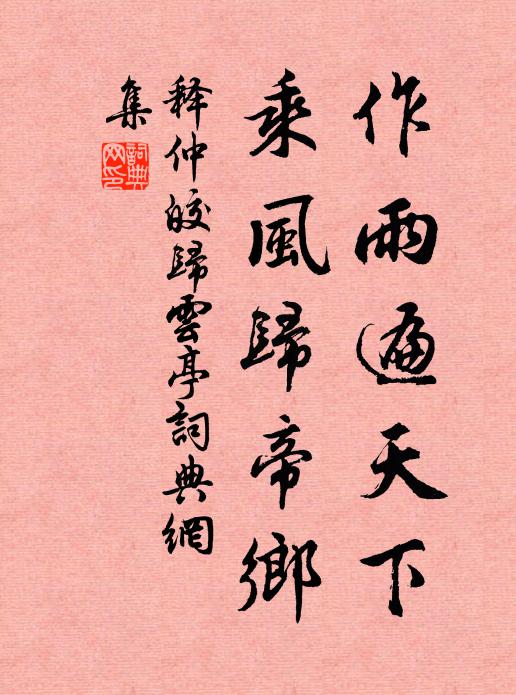 作雨遍天下
乘風歸帝鄉
释仲皎歸雲亭詞典網
集
詞典网印